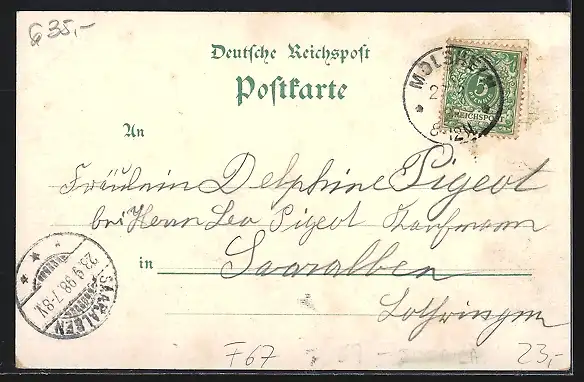 G 35,-
Deutsche Reichspost
Postkarte
MOLSHEIM
5
REICHSPOST
8-12V.
An
Fräulein Delphine Pigeot
bei Herrn Leo Pigeot Kaufmann
in Saaralben
Lothringen
SAARALBEN
23.9.98.7-8V.
F67
23,-